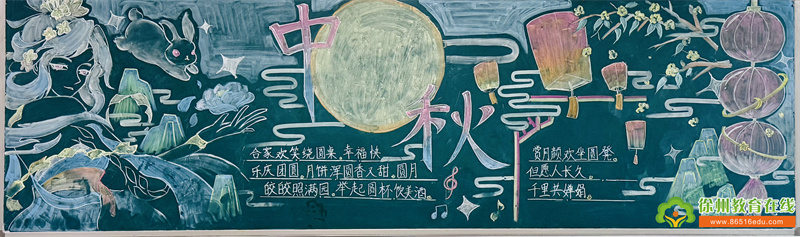 中秋
合家欢笑绕圆桌,幸福快
乐庆团圆。月饼浑圆香又甜,圆月
皎皎照满园。举起圆杯饮美酒,
赏月颜欢坐圆凳。
但愿人长久,
千里共婵娟。
徐州教育在线
www.86516edu.com